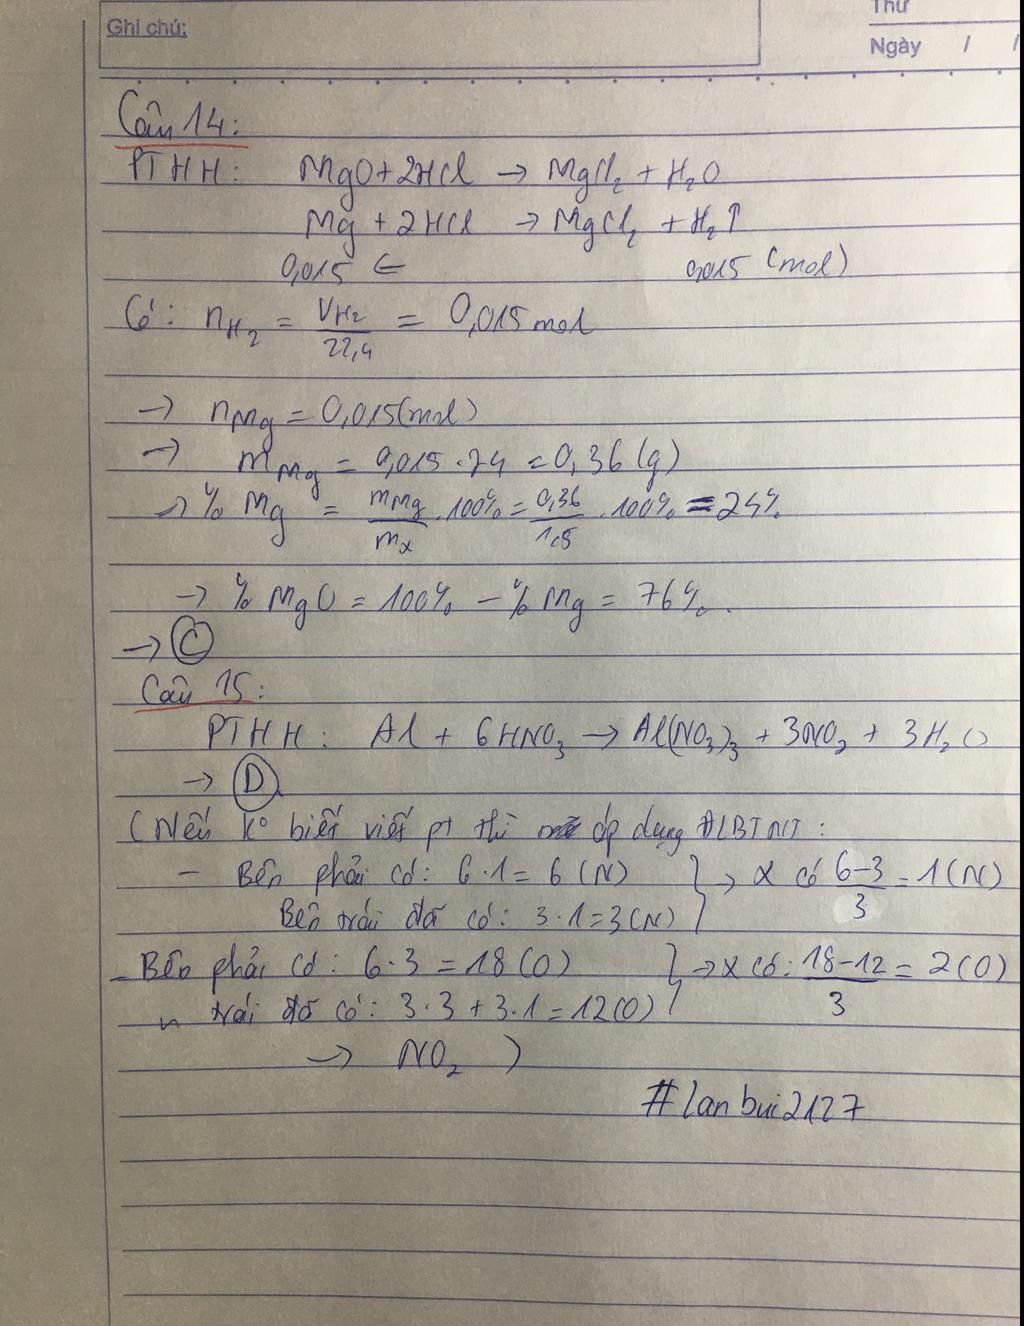 Ghi chú:
Thứ
Ngày / /
Câu 14:
PTHH: MgO + 2HCl → MgCl₂ + H₂O
Mg + 2HCl → MgCl₂ + H₂↑
0,015 ← 0,015 (mol)
Có: nH₂ = VH₂/22,4 = 0,015 mol
→ nMg = 0,015 (mol)
→ mMg = 0,015 . 24 = 0,36 (g)
→ % Mg = mMg/mx . 100% = 0,36/1,5 . 100% = 24%
→ % MgO = 100% - % Mg = 76%.
→ C
Câu 15:
PTHH: Al + 6HNO₃ → Al(NO₃)₃ + 3NO₂ + 3H₂O
→ D
(Nếu k° biết viết pt thì áp dụng ĐLBTNT:
- Bên phải có: 6.1 = 6 (N) } → X có 6-3/3 = 1 (N)
Bên trái đã có: 3.1 = 3 (N)
- Bên phải có: 6.3 = 18 (O) } → X có: 18-12/3 = 2 (O)
" trái đã có: 3.3 + 3.1 = 12 (O)
→ NO₂ )
#lanbui2127